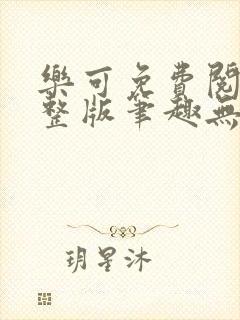 樂可免費閱
整版筆趣無
玥星沐